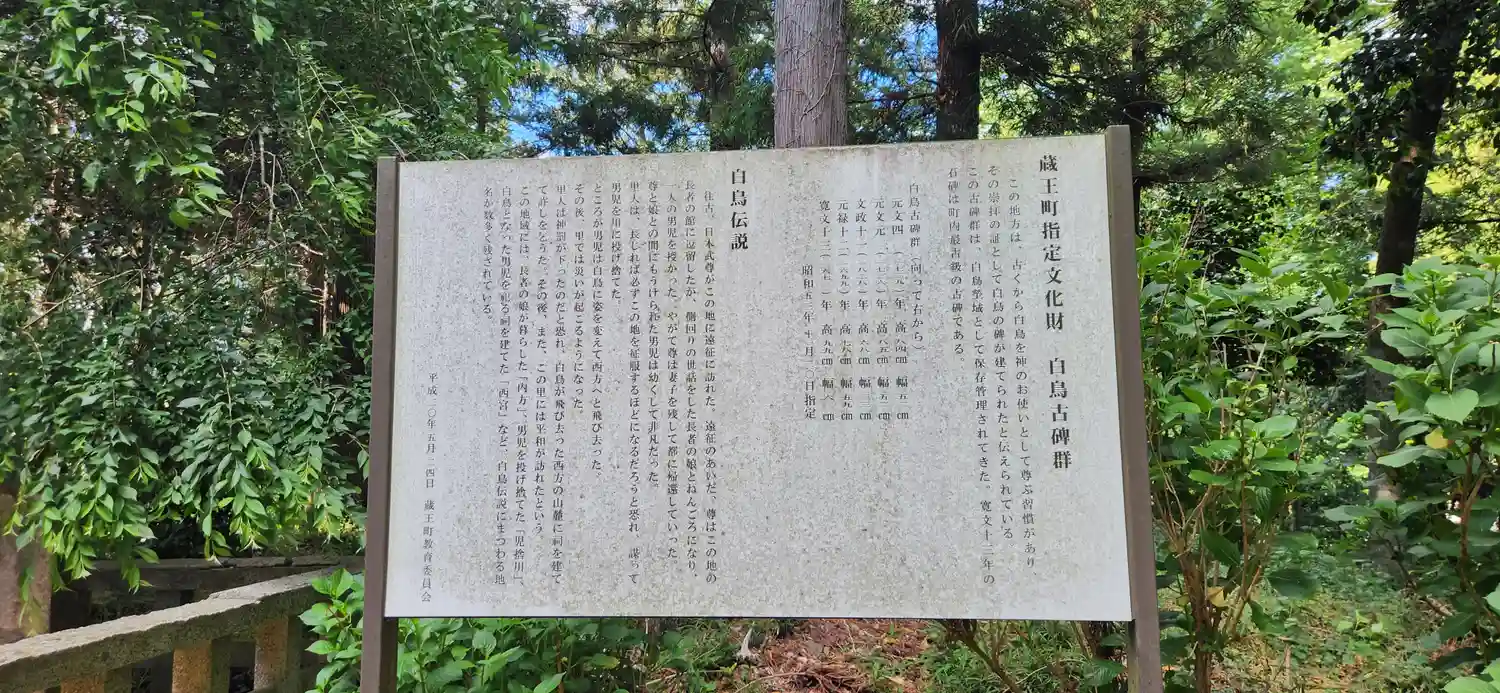 蔵王町指定文化財　白鳥古碑群
この地方は、古くから白鳥を神のお使いとして尊ぶ習慣があり、
その崇拝の証として白鳥の碑が建てられたと伝えられている。
この古碑群は、白鳥塋域として保存管理されてきた。寛文十三年の
石碑は町内最古級の古碑である。
白鳥古碑群（向って右から）
元文四 年 高 cm 幅五 cm
元文元 年 高八五cm 幅五 cm
文政十 年 高六八cm 幅三 cm
元禄十二 年 高 cm 幅五九cm
寛文十三 年 高九九cm 幅 八cm
昭和五 年十月 〇日指定
白鳥伝説
往古、日本武尊がこの地に遠征に訪れた。遠征のあいだ、尊はこの地の
長者の館に逗留したが、側回りの世話をした長者の娘とねんごろになり、
一人の男児を授かった。やがて尊は妻子を残して都に帰還していった。
尊と娘との間にもうけられた男児は幼くして非凡だった。
里人は、長じれば必ずこの地を征服するほどになるだろうと恐れ、謀って
男児を川に投げ捨てた。
ところが男児は白鳥に姿を変えて西方へと飛び去った。
その後、里では災いが起こるようになった。
里人は神罰が下ったのだと恐れ、白鳥が飛び去った西方の山麓に祠を建て
て許しをこうた。その後、また、この里には平和が訪れたという。
この地域には、長者の娘が暮らした「内方」、男児を投げ捨てた「児捨川」、
白鳥となった男児を祀る祠を建てた「西宮」など、白鳥伝説にまつわる地
名が数多く残されている。
平成 〇年五月 四日　蔵王町教育委員会